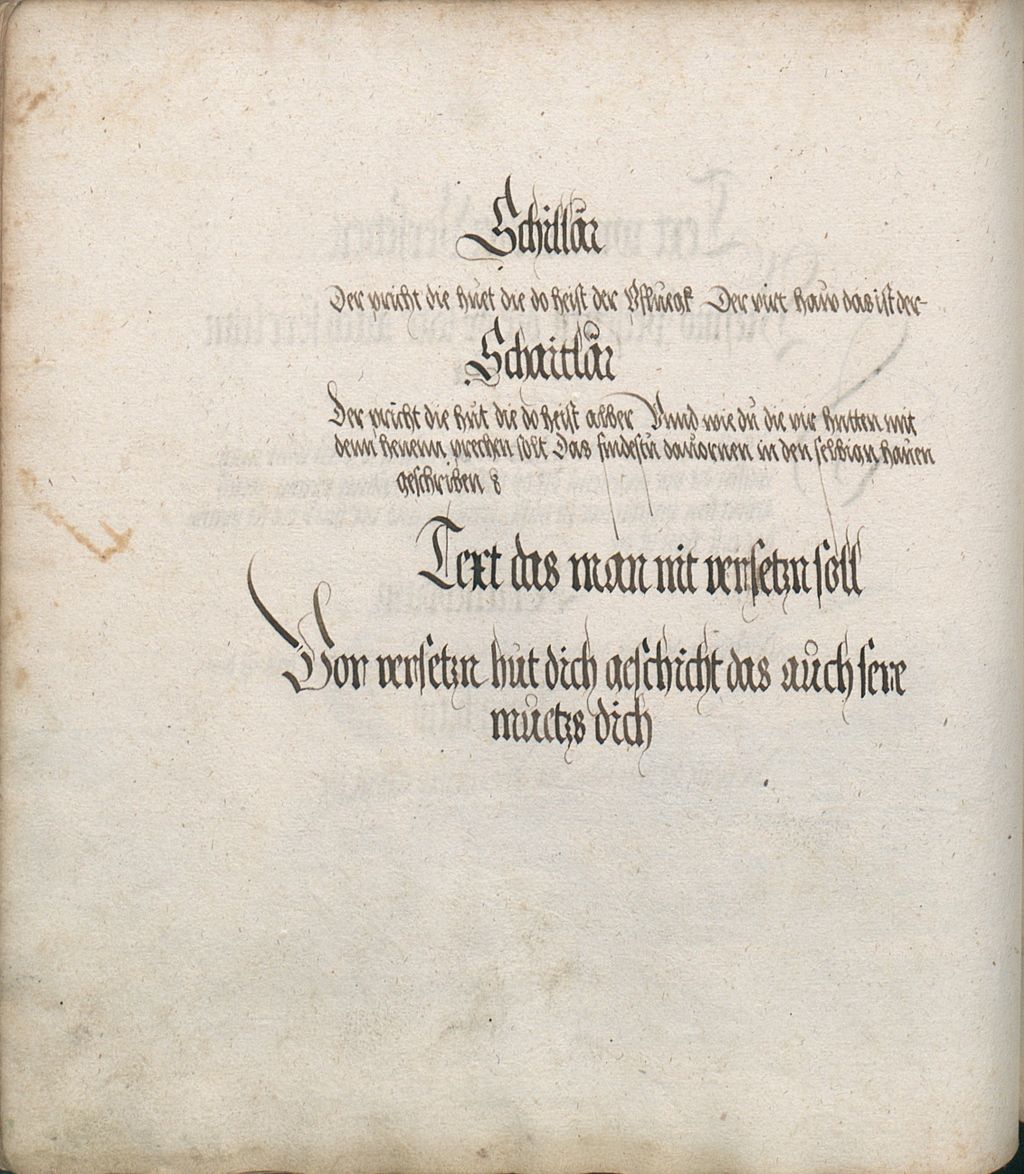 Schillār
Der pricht die huet die do heist der Pflueg Der virt haw das ist der
Schaitlār
Der pricht die hūt die do heist alber Vnnd wie dū die vir hutten mit
denn hewenn prechen solt Das findestu dauornen in den selbign hauen
geschriben
Text das man nit versetzn soll
Vor versetzn hūt dich geschicht das aūch sere
mūetzs dich